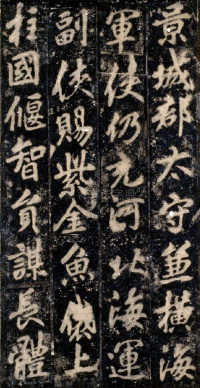 景城郡太守並橫海
軍使仍充河北海運
副使賜紫金魚袋上
柱國偃智負謀長體